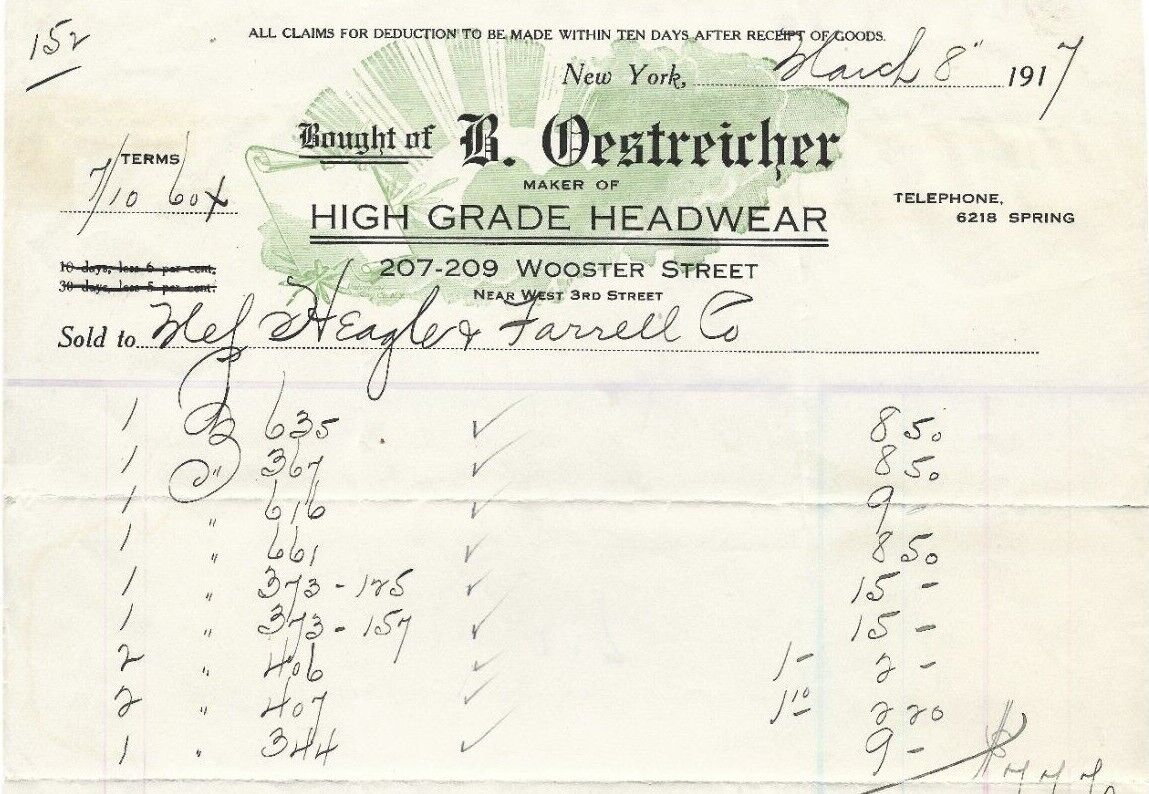 152
ALL CLAIMS FOR DEDUCTION TO BE MADE WITHIN TEN DAYS AFTER RECEIPT OF GOODS.
New York, March 8" 1917
Bought of B. Oestreicher
TERMS
7/10 60x
MAKER OF
HIGH GRADE HEADWEAR
TELEPHONE,
6218 SPRING
207-209 WOOSTER STREET
NEAR WEST 3RD STREET
10 days, less 6 per cent,
30 days, less 5 per cent.
Sold to Heagle & Farrell Co
1 635 ✓ 8 50
1 " 367 ✓ 8 50
1 " 616 ✓ 9 -
1 " 661 ✓ 8 50
1 " 373 - 125 ✓ 15 -
1 " 373 - 157 ✓ 15 -
2 " 406 ✓ 1- 2 -
2 " 407 ✓ 1 10 2 20
1 " 344 ✓ 9 -
$